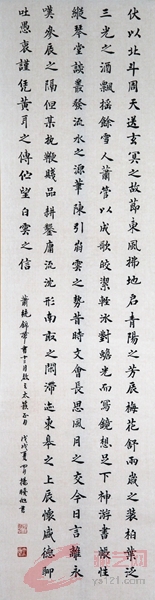 伏以北斗周天送玄冥之故節東風拂地啟青陽之芳辰梅花舒兩歲之裝柏葉泛
三光之酒飄颻餘雪入簫管以成歌皎潔輕冰對蟾光而寫鏡想足下神游書帳性
縱琴堂談叢發流水之源筆陣引崩雲之勢昔時文會長思風月之交今日言離永
嘆參辰之隔但某執鞭賤品耕鑿庸流沈形南畝之間滯迹東皋之上長懷盛德聊
吐愚衷謹凭黃耳之傳佇望白雲之信
蕭統錦帶書十二月啟之太蔟正月 戊戌夏四月楊 書